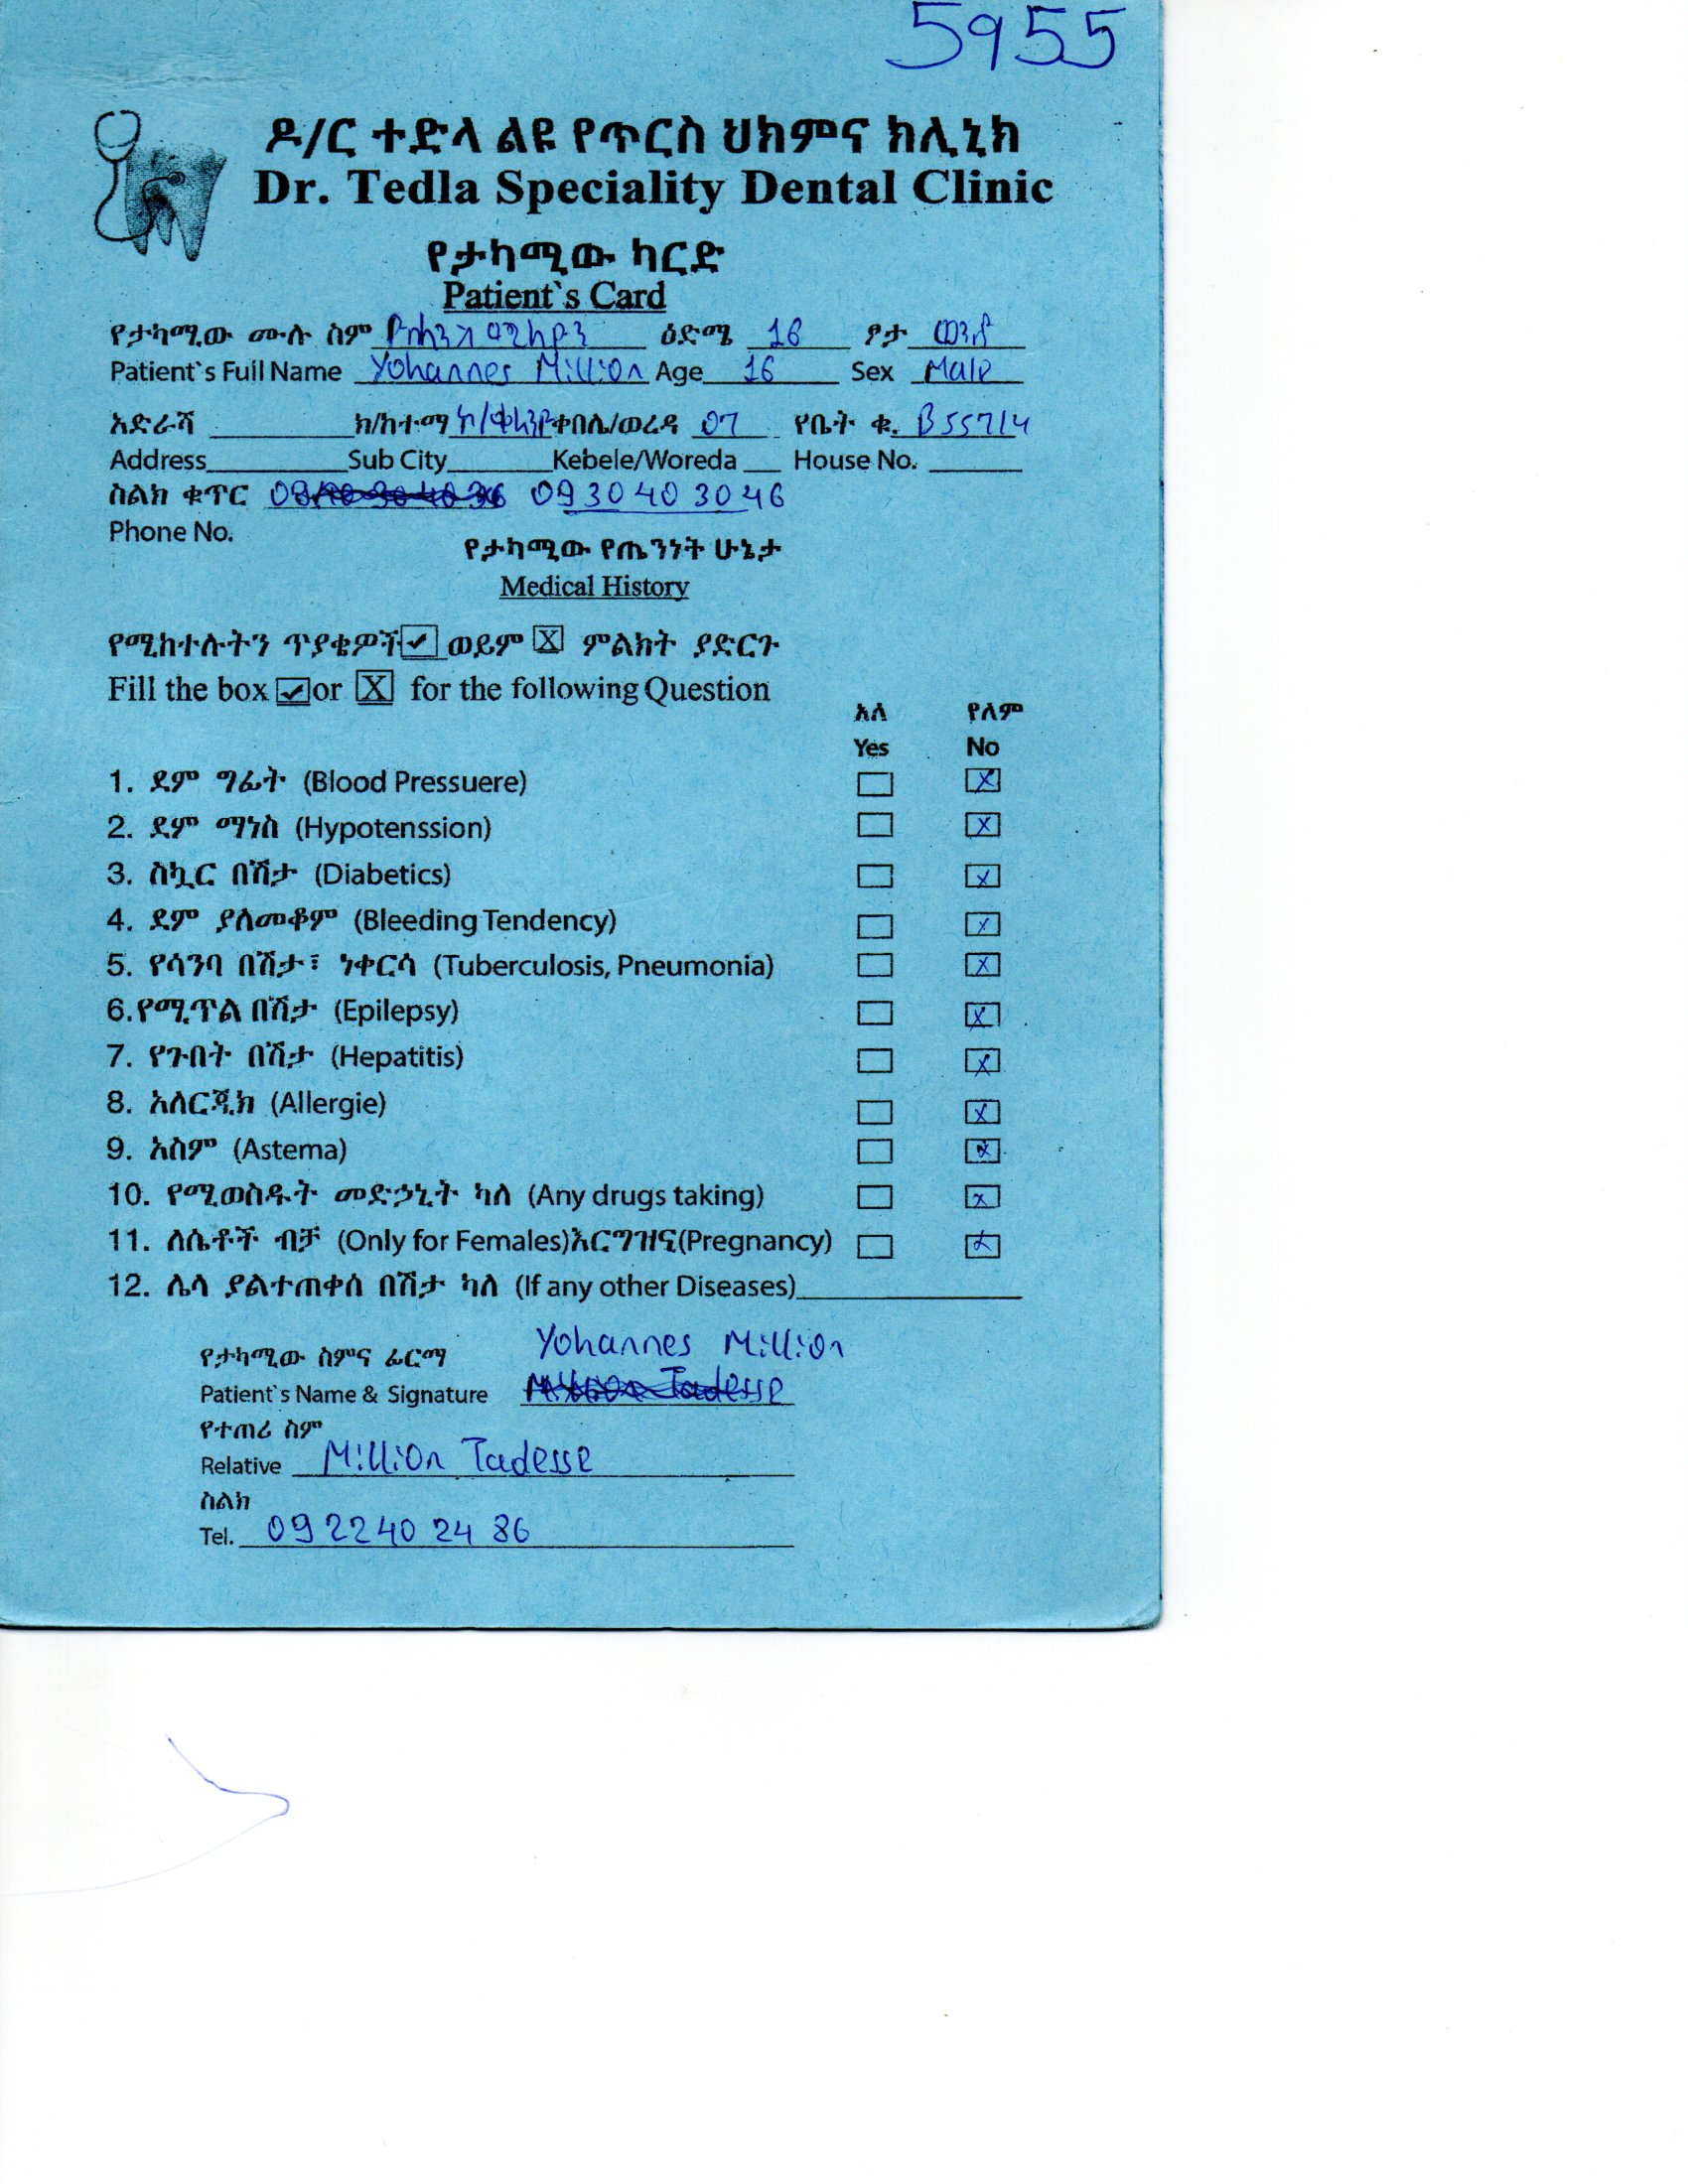 5955
ዶ/ር ተድላ ልዩ የጥርስ ህክምና ክሊኒክ
Dr. Tedla Speciality Dental Clinic
የታካሚው ካርድ
Patient`s Card
የታካሚው ሙሉ ስም ዮሐንስ ሚሊዮን ዕድሜ 16 ፆታ ወንድ
Patient`s Full Name Yohannes Million Age 16 Sex Male
አድራሻ ክ/ከተማ ቀበሌ/ወረዳ 07 የቤት ቁ. B557/4
Address Sub City Kebele/Woreda House No.
ስልክ ቁጥር 09 30 40 30 46
Phone No.
የታካሚው የጤንነት ሁኔታ
Medical History
የሚከተሉትን ጥያቄዎች ✓ ወይም X ምልክት ያድርጉ
Fill the box ✓ or X for the following Question
አለ የለም
Yes No
1. ደም ግፊት (Blood Pressuere) X
2. ደም ማነስ (Hypotenssion) X
3. ስኳር በሽታ (Diabetics) X
4. ደም ያለመቆም (Bleeding Tendency) X
5. የሳንባ በሽታ፣ ነቀርሳ (Tuberculosis, Pneumonia) X
6.የሚጥል በሽታ (Epilepsy) X
7. የጉበት በሽታ (Hepatitis) X
8. አለርጂክ (Allergie) X
9. አስም (Astema) X
10. የሚወስዱት መድኃኒት ካለ (Any drugs taking) X
11. ለሴቶች ብቻ (Only for Females)እርግዝና(Pregnancy) X
12. ሌላ ያልተጠቀሰ በሽታ ካለ (If any other Diseases)
የታካሚው ስምና ፊርማ Yohannes Million
Patient`s Name & Signature Million Tadesse
የተጠሪ ስም
Relative Million Tadesse
ስልክ
Tel. 09 22 40 24 86